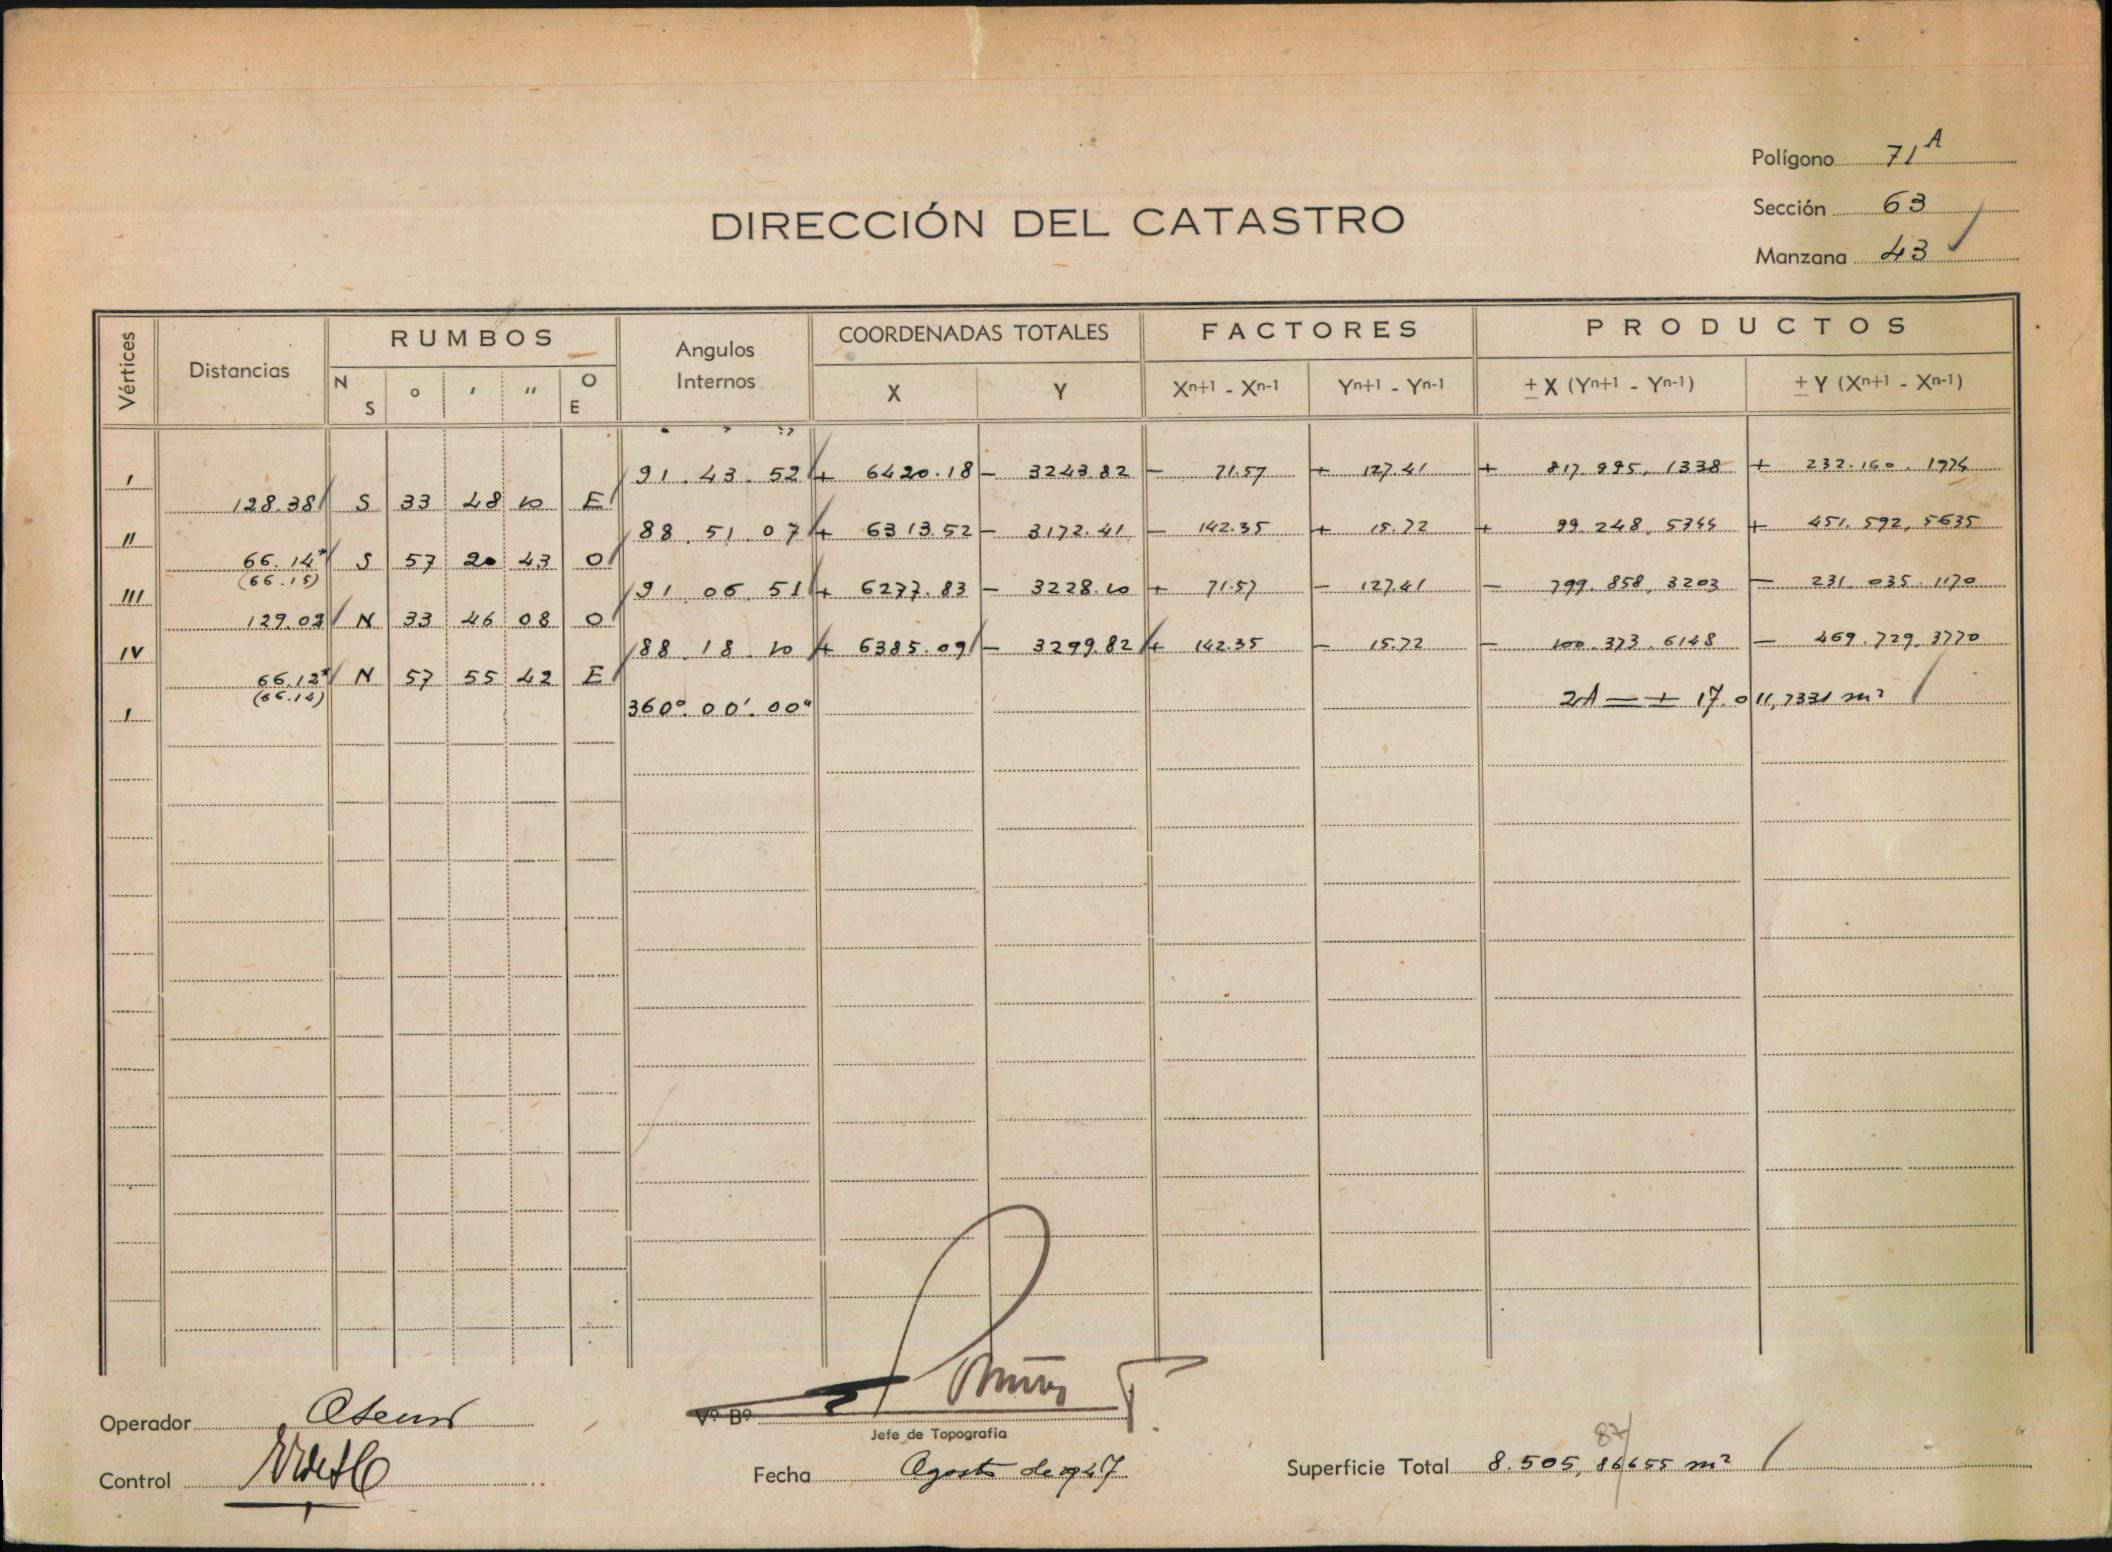 Polígono 71 A
Sección 63
Manzana 43
DIRECCIÓN DEL CATASTRO
Vértices Distancias RUMBOS Angulos Internos COORDENADAS TOTALES FACTORES PRODUCTOS
N S ° ' '' O E X Y Xn+1 - Xn-1 Yn+1 - Yn-1 ± X (Yn+1 - Yn-1) ± Y (Xn+1 - Xn-1)
° ' ''
I 91.43.52 + 6420.18 — 3243.82 — 71.57 + 127.41 + 817.995,1338 + 232.160.1974
128.38 S 33 48 10 E
II 88.51.07 + 6313.52 — 3172.41 — 142.35 + 15.72 + 99.248,5344 + 451.592,5635
66.14* S 57 20 43 O
(66.15)
III 91.06.51 + 6277.83 — 3228.10 + 71.57 — 127.41 — 799.858,3203 — 231.035.1170
129.03 N 33 46 08 O
IV 88.18.10 + 6385.09 — 3299.82 + 142.35 — 15.72 — 100.373.6148 — 469.729,3770
66.12* N 57 55 42 E
(66.14)
I 360°.00'.00" 2A = + 17.011,7331 m²
Operador
Vº Bº
Jefe de Topografía
Control
Fecha Agosto de 1947
87
Superficie Total 8.505,86655 m²